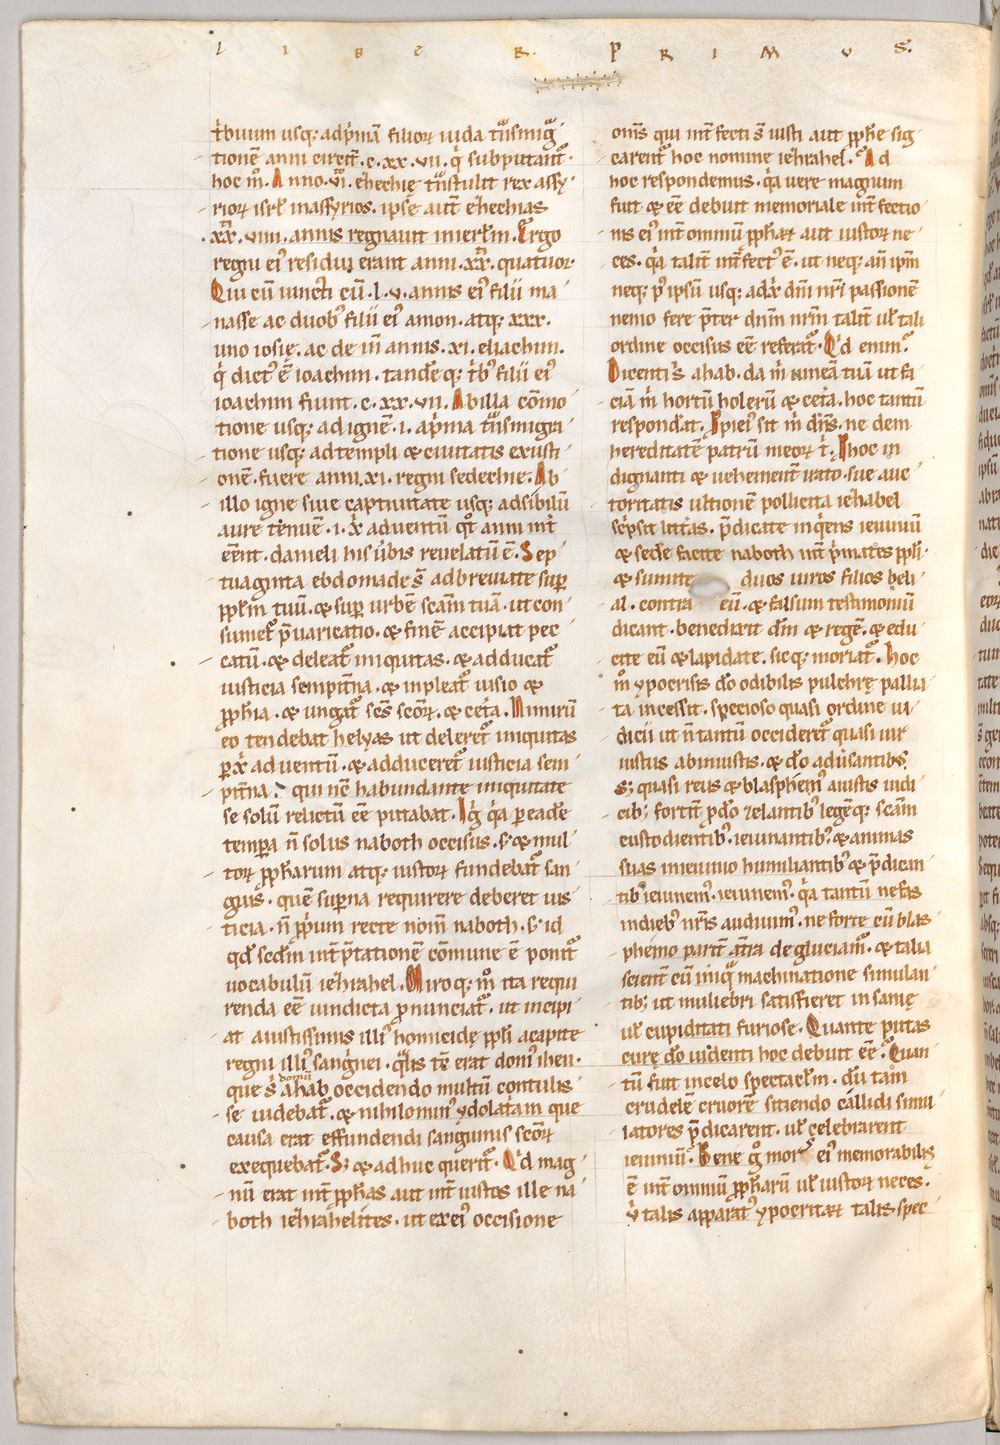 L I B E R. P R I M V S.
t̾buum usq; ad p̾mā filioꝝ iuda t̾nsmig̾
tionē anni circit̾.c.xx.vii.q̾ subputant̾.
hoc m̊. Anno.vi. ezechie t̾nstulit rex assy
rioꝝ isrł in assyrios. ipse aut̄ ezechias
.xx.viiii.annis regnauit in ierłm. Ergo
regni ei᾽ residui erant anni.xx. quatuor
Qui cū iuncti cū.l.v.annis ei᾽ filii ma
nasse ac duob᾽ filii ei᾽ amon. atq; xxx.
uno iosię. ac de in̄ annis.xi. eliachim.
q̾ dict᾽ ē ioachim. tandeq; t̾b᾽ filii ei᾽
ioachim fiunt.c.xx.vii. Ab illa cōmo
tione usq; ad ignē.i. a p̾ma t̾nsmigra
tione usq; ad templi & ciuitatis exusti
onē. fuere anni.xi. regni sedechie. Ab
illo igne siue captiuitate usq; ad sibilū
aure tenuē.i. x̄ aduentū qt̾ anni int̄
eēnt. danieli his ūbis reuelatū ē. Sep
tuaginta ebdomade s̄ adbreuiate sup̱
pp̱łm tuū. & sup̱ urbē scām tuā. ut con
sumet̾ p̄uaricatio. & finē accipiat pec
catū. & deleat̾ iniquitas. & adducat̾
iusticia sempit̾na. & inpleat̾ uisio &
pp̱hia. & ungat̾ scs̄ scōꝝ. & cet̾a. Nimirū
eo tendebat helyas ut deleret̾ iniquitas
p̱ x̄ aduentū. & adduceret̾ iusticia sem
pit̾na. qui nc̄ habundante iniquitate
se solū relictū eē putabat. Ig̾ q̾a p̱ eade
tempa n̄ solus naboth occisus. s; & mul
toꝝ pp̱harum atq; iustoꝝ fundebat̾ san
guis. quē sup̱na requirere deberet ius
ticia. n̄ pp̱rium recte nom̄ naboth. s; id
qd̾ scd̄m int̾p̄tationē cōmune ē ponit̾
uocabulū iezrahel. Miroq; m̊ ita requi
renda eē uindicta p̱nunciat̾. ut incipi
at a iustissimis illi᾽ homicidę pp̱łi a capite
regni illi᾽ sang̾nei. q̾lis tc̄ erat dom᾽ iheu.
que s̄ domū ahab occidendo multū contulis
se uidebat̾. & nihilomin᾽ ydolat̾am que
causa erat effundendi sanguinis scōꝝ
exequebat̾. S; & adhuc querit̾. Q̾d mag
nū erat int̄ pp̱has aut int̄ iustos ille na
both iezrahelites. ut ex ei᾽ occisione
oms̄ qui int̄fecti s̄ iusti aut pp̱he sig
carent̾ hoc nomine iezrahel. Ad
hoc respondemus. q̾a uere magnum
fuit & eē debuit memoriale int̄fectio
nis ei᾽ int̄ omniū pp̱haꝝ aut iustoꝝ ne
ces. q̾a talit̄ int̄fect᾽ ē. ut neq; an̄ ipm̄
neq; p᾽ ipsū usq; ad x̄ dn̄i nr̄i passionē
nemo fere p̄ter dnm̄ nrm̄ talit̄ uł tali
ordine occisus eē referat̾. Q̾d enim.
Dicenti s̄ ahab. da m̾ uineā tuā ut fa
ciā m̾ hortū holerū & cet̾a. hoc tantū
respond̾at. Ppici᾽ sit m̾ dn̄s. ne dem
hereditatē patrū meoꝝ t̾. Phoc in
dignanti & uehement̄ irato. sue auc
toritatis ultionē pollicita iezhabel
sc̾psit litt̾as. p̄dicate inq̾ens ieiuniū
& sede facite naboth int̄ p̾mates pp̱łi.
& sumite duos uiros filios beli
al. contra eū. & falsum testimoniū
dicant. benedixit dm̄ & regē. & edu
cite eū & lapidate. sicq; moriat̾. Hoc
m̊ ypocrisis d̄o odibilis pulchrę pallia
ta incessit. specioso quasi ordine iu
dicii ut n̄ tantū occideret̾ quasi uir
iustus ab iniustis. & d̄o adūsantib;
s; quasi reus & blasphem᾽ a iustis iudi
cib; fortit̄ p̱ d̄o zelantib᾽ legēq; scām
custodientib᾽. ieiunantib᾽. & animas
suas in ieiunio humiliantib᾽ & p̄dican
tib᾽ ieiunem᾽. ieiunem᾽. q̾a tantū nefas
in dieb᾽ nr̄is audiuim᾽. ne forte eū blas
phemo partē at̾a deglutiam᾽. & talia
scient̄ cū iniq̾ machinatione simulan
tib; ut muliebri satisfieret insanię
uł cupiditati furiose. Quante putas
curę d̄o uidenti hoc debuit eē. Quan
tū fuit in celo spectacłm. dū tam
crudelē cruorē sitiendo callidi simu
latores p̄dicarent. uł celebrarent
ieiuniū. Bene g̊ mors ei᾽ memorabilis
ē int̄ omniū pp̱harū uł iustoꝝ neces.
u talis apparat᾽ ypocritaꝝ talis spec